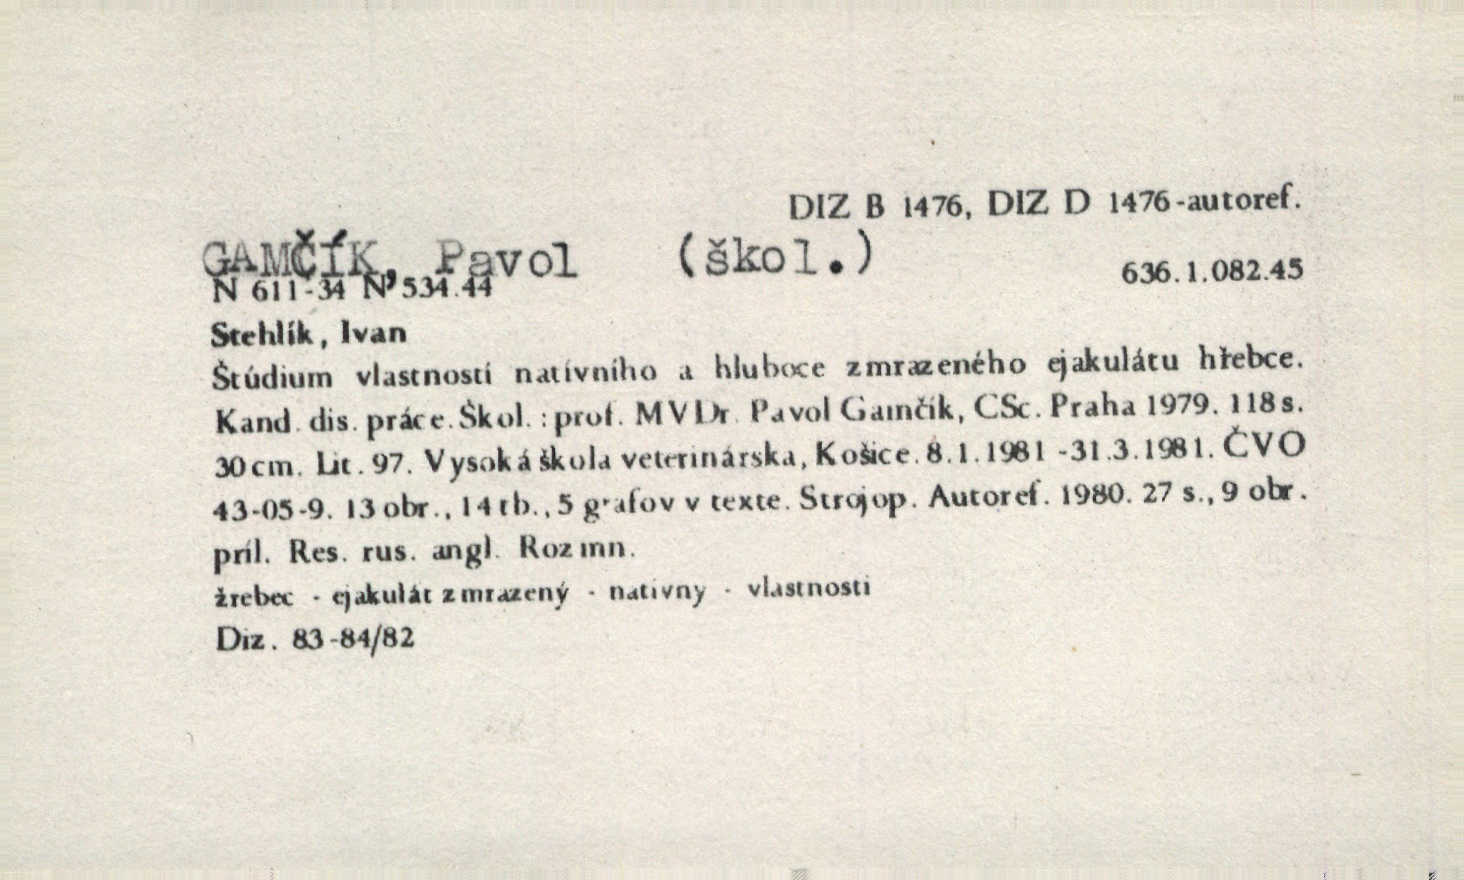 DIZ B 1476, DIZ D 1476-autoref.
GAMČÍK, Pavol (škol.)
636.1.082.45
N 611-34 N 534.44
Stehlík, Ivan
Štúdium vlastností natívního a hluboce zmrazeného ejakulátu hřebce.
Kand. dis. práce. Škol.: prof. MVDr. Pavol Gamčík, CSc. Praha 1979. 118 s.
30 cm. Lit. 97. Vysoká škola veterinárska, Košice. 8.1.1981 -31.3.1981. ČVO
43-05-9. 13 obr., 14 tb., 5 grafov v texte. Strojop. Autoref. 1980. 27 s., 9 obr.
príl. Res. rus. angl. Rozmn.
žrebec - ejakulát zmrazený - natívny - vlastnosti
Diz. 83-84/82